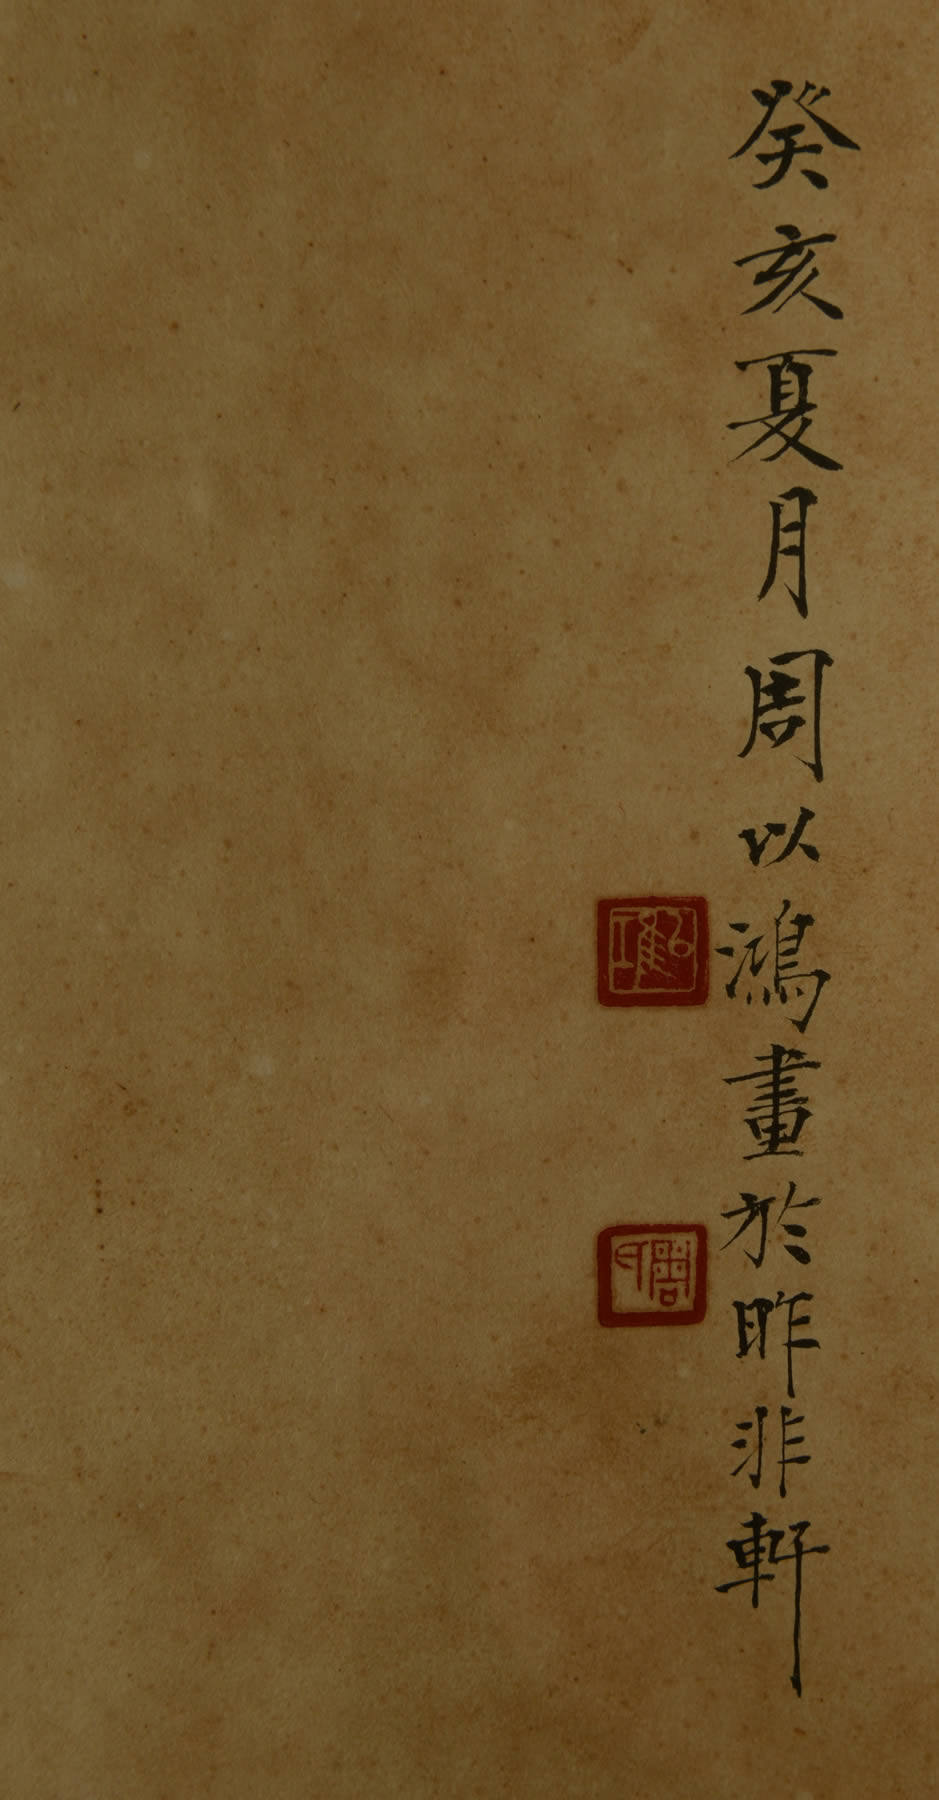 癸亥夏月周以鴻畫於昨非軒